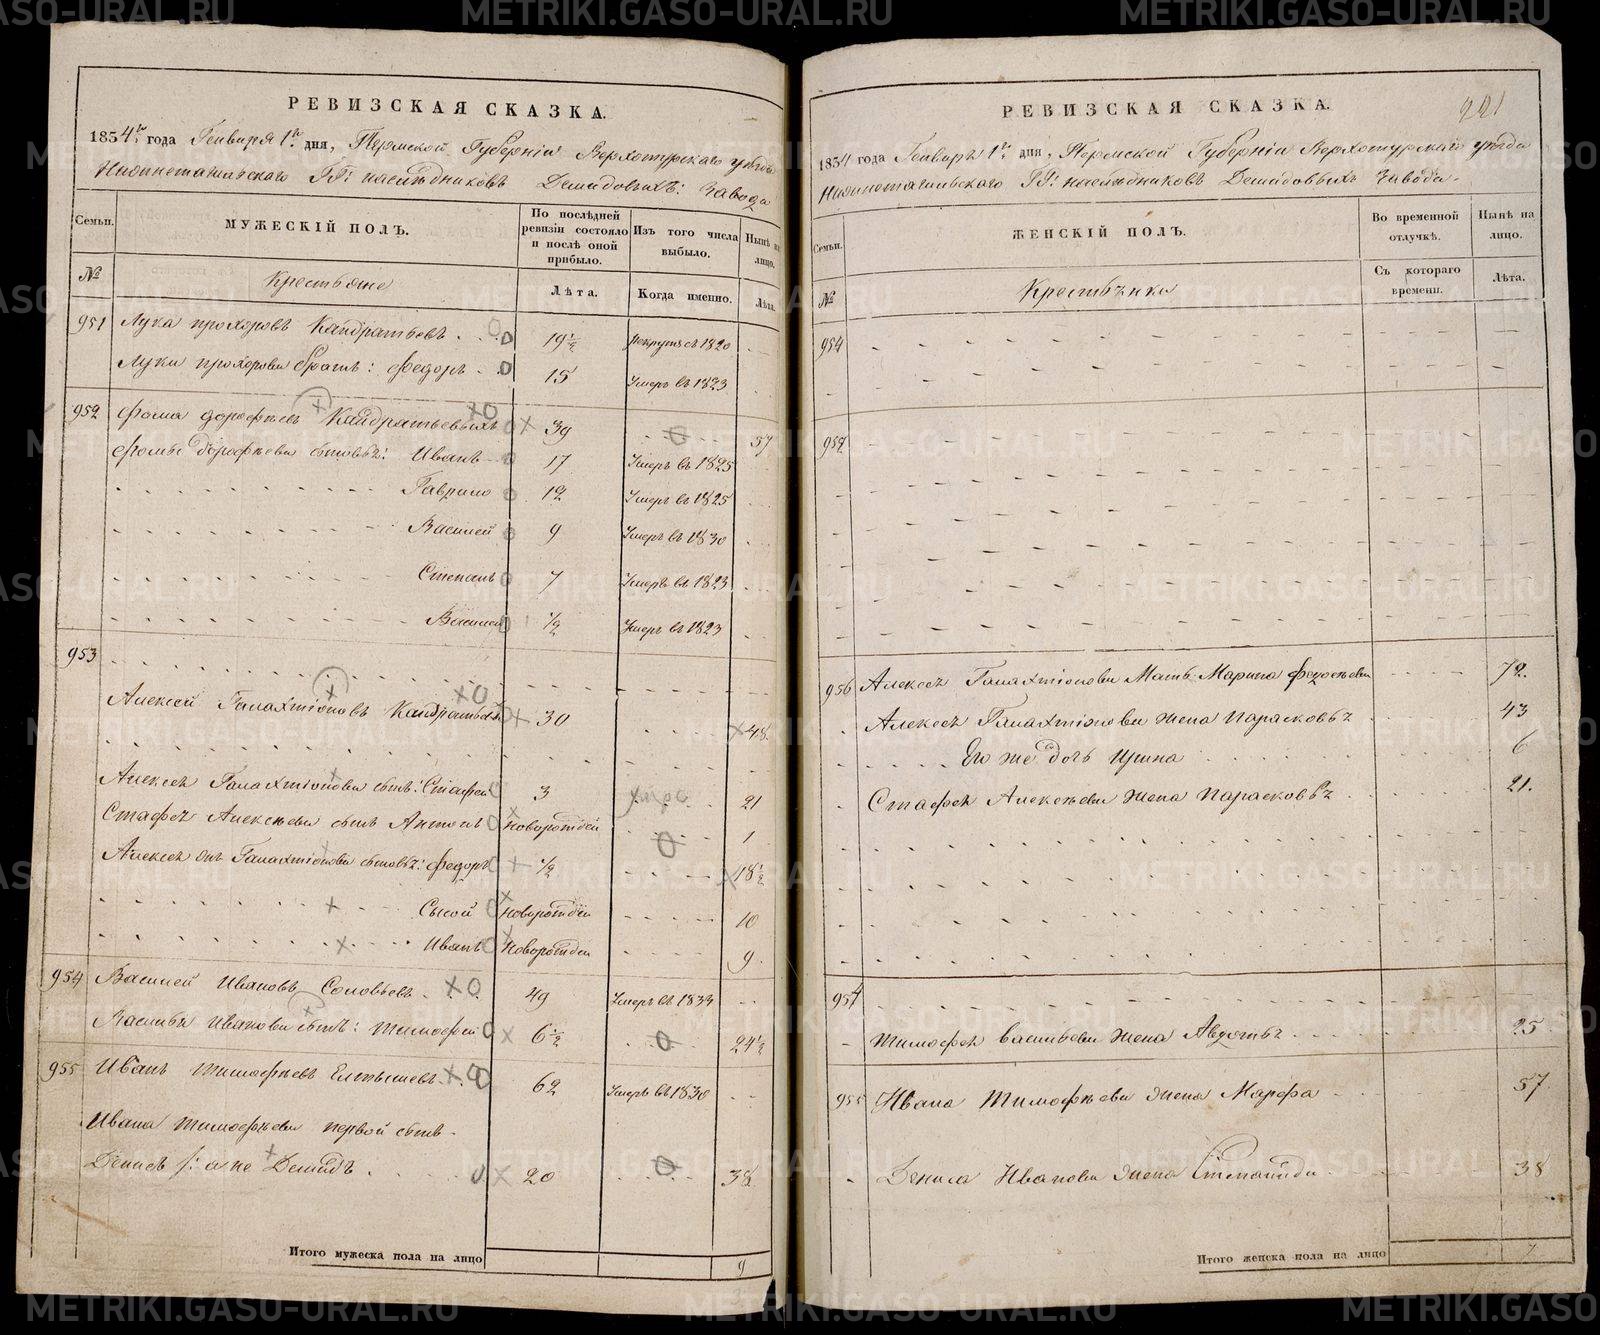 РЕВИЗСКАЯ СКАЗКА.
1834 года Генваря 1го дня, Пермской Губерніи Верхотурскаго уѣзда
Нижнетагильскаго ГГ: наслѣдниковъ Демидовыхъ: Завода
Семьи.
МУЖЕСКІЙ ПОЛЪ.
По послѣдней ревизіи состояло и послѣ оной прибыло.
Изъ того числа выбыло.
Нынѣ на лицо.
№
Крестьяне
Лѣта.
Когда именно.
Лѣта.
951 Лука Прохоровъ Кайдратьевъ 19½ рекрутъ съ 1820
Луки Прохорова братъ: Федоръ 15 Умеръ въ 1823
952 Фома Дорофѣевъ Кайдратьевыхъ 39 57
Фомы Дорофѣева сыновья: Иванъ 17 Умеръ въ 1825
Гаврило 12 Умеръ въ 1825
Василей 9 Умеръ въ 1830
Степанъ 7 Умеръ въ 1823
Василей ½ Умеръ въ 1823
953
Алексей Галахтіоновъ Кайдратьевъ 30 48
Алексея Галахтіонова сынъ: Стафей 3 21
Стафея Алексѣева сынъ Антонъ новорожденъ 1
Алексея Галахтіонова сыновья: Федоръ ½ 18½
Сысой новорожденъ 10
Иванъ новорожденъ 9
954 Василей Ивановъ Соловьевъ 49 Умеръ въ 1834
Василья Иванова сынъ: Тимофей 6½ 24½
955 Иванъ Тимофѣевъ 62 Умеръ въ 1830
Ивана Тимофѣева первой сынъ
Денисъ /: а не Демидъ 20 38
Итого мужеска пола на лицо 9
РЕВИЗСКАЯ СКАЗКА.
221
1834 года Генваря 1го дня, Пермской Губерніи Верхотурскаго уѣзда
Нижнетагильскаго ГГ: наслѣдниковъ Демидовыхъ Завода.
Семьи.
ЖЕНСКІЙ ПОЛЪ.
Во временной отлучкѣ.
Нынѣ на лицо.
№
Крестьянки
Съ котораго времени.
Лѣта.
951
952
953 Алексея Галахтіонова Мать Марина Федосѣева 72
Алексея Галахтіонова жена Парасковья 43
Его же дочь Ирина 6
Стафея Алексѣева жена Парасковья 21.
954
Тимофея Васильева жена Авдотья 25
955 Ивана Тимофѣева жена Марфа 57
Дениса Иванова жена Степанида 38
Итого женска пола на лицо 7
METRIKI.GASO-URAL.RU